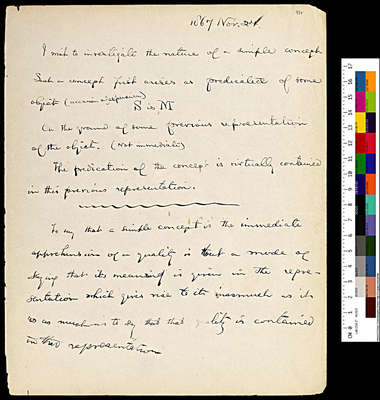 1867 Nov. 24.
I wish to investigate the nature of a simple concept
Such a concept first arises as predicate of some
object (occasion of experience)
S is M
On the ground of some previous representation
of the object. (Not immediate)
The predication of the concept is virtually contained
in this previous representation.
To say that a simple concept is the immediate
apprehension of a quality is but a mode of
saying that its meaning is given in the repre-
sentation which gives rise to it inasmuch as it
is as much as to say that that quality is contained
in that representation